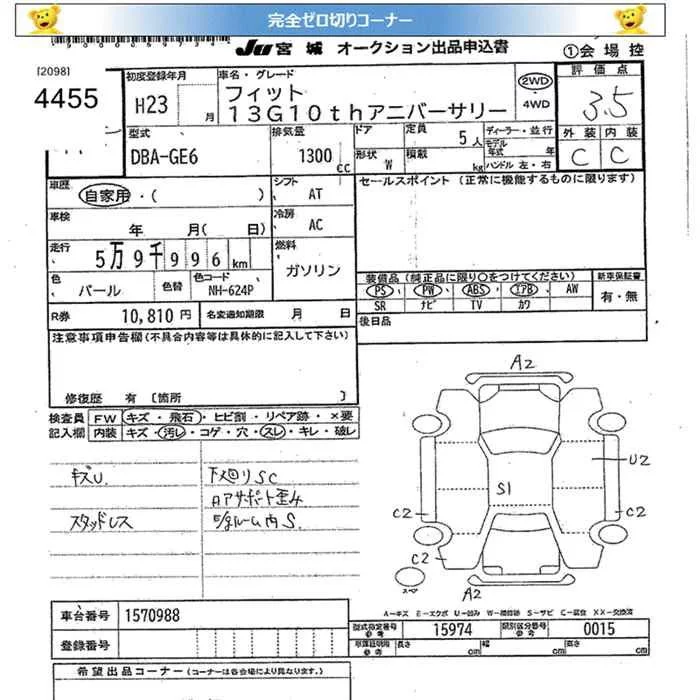 完全ゼロ切りコーナー
JU 宮城 オークション出品申込書 ①会場控
[2098]
4455
初度登録年月 H23 月
車名・グレード フィット
13G10thアニバーサリー
2WD ・ 4WD
評価点 3.5
外装 内装
C C
型式 DBA-GE6
排気量 1300 cc
ドア 形状 W
定員 5人
積載 kg
ディーラー・並行
モデル年式 年
ハンドル 左・右
車歴 自家用・( )
シフト AT
セールスポイント (正常に機能するものに限ります)
車検 年 月( 日)
冷房 AC
走行 5万9千996km
燃料 ガソリン
色 パール 色替 色コード NH-624P
装備品 (純正品に限り○をつけてください) 新車保証書
PS・PW・ABS・エアB・AW 有・無
SR ナビ TV カワ
R券 10,810円 名変通知期限 月 日
後日品
注意事項申告欄(不具合内容等は具体的に記入して下さい)
修復歴 有 [箇所 ]
検査員 FW キズ・飛石・ヒビ割・リペア跡・×要
記入欄 内装 キズ・汚レ・コゲ・穴・スレ・キレ・破レ
キズU
下廻りSC
Aアサポート歪み
スタッドレス
E/gルーム内S
A2
U2
S1
C2
C2
C2
A2
スペア
A-キズ E-エクボ U-凹み W-補修跡 S-サビ C-腐食 XX-交換済
車台番号 1570988
型式指定番号 参考 15974 類別区分番号 参考 0015
登録番号
車庫証明用 参考 長さ cm 幅 cm 高さ cm
希望出品コーナー (コーナーは各会場により異なります。)